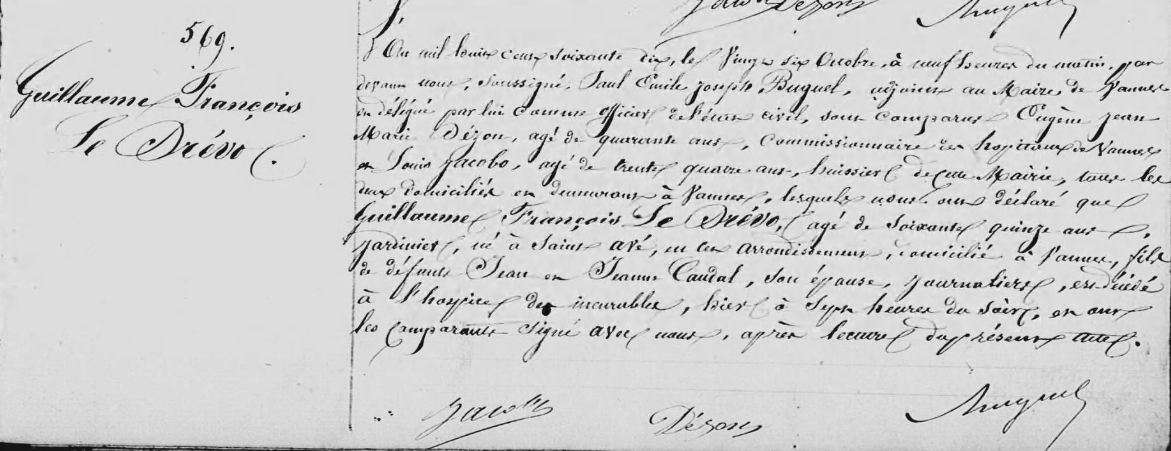 Jacobo Dézon Muguet
569.
Guillaume François
Le Drévo
L'An mil huit cent soixante dix, le Vingt six Octobre, à neuf heures du matin, par
devant nous, soussigné, Paul Emile Joseph Buguel, adjoint au Maire de Vannes
et délégué par lui comme officier de l'état civil, sont comparus Eugène Jean
Marie Dézon, agé de quarante ans, commissionnaire des hopitaux de Vannes
et Louis Jacobo, agé de trente quatre ans, huissier de cette Mairie, tous les
deux domiciliés et demeurant à Vannes, lesquels nous ont déclaré que
Guillaume François Le Drévo, agé de soixante quinze ans,
jardinier, né à Saint Avé, en cet arrondissement, domicilié à Vannes, fils
de défunts Jean et Jeanne Caudal, son épouse, journaliers, est décédé
à l'hospice des incurables, hier à sept heures du soir, et ont
les comparants signé avec nous, après lecture du présent acte.
Jacobo Dézon